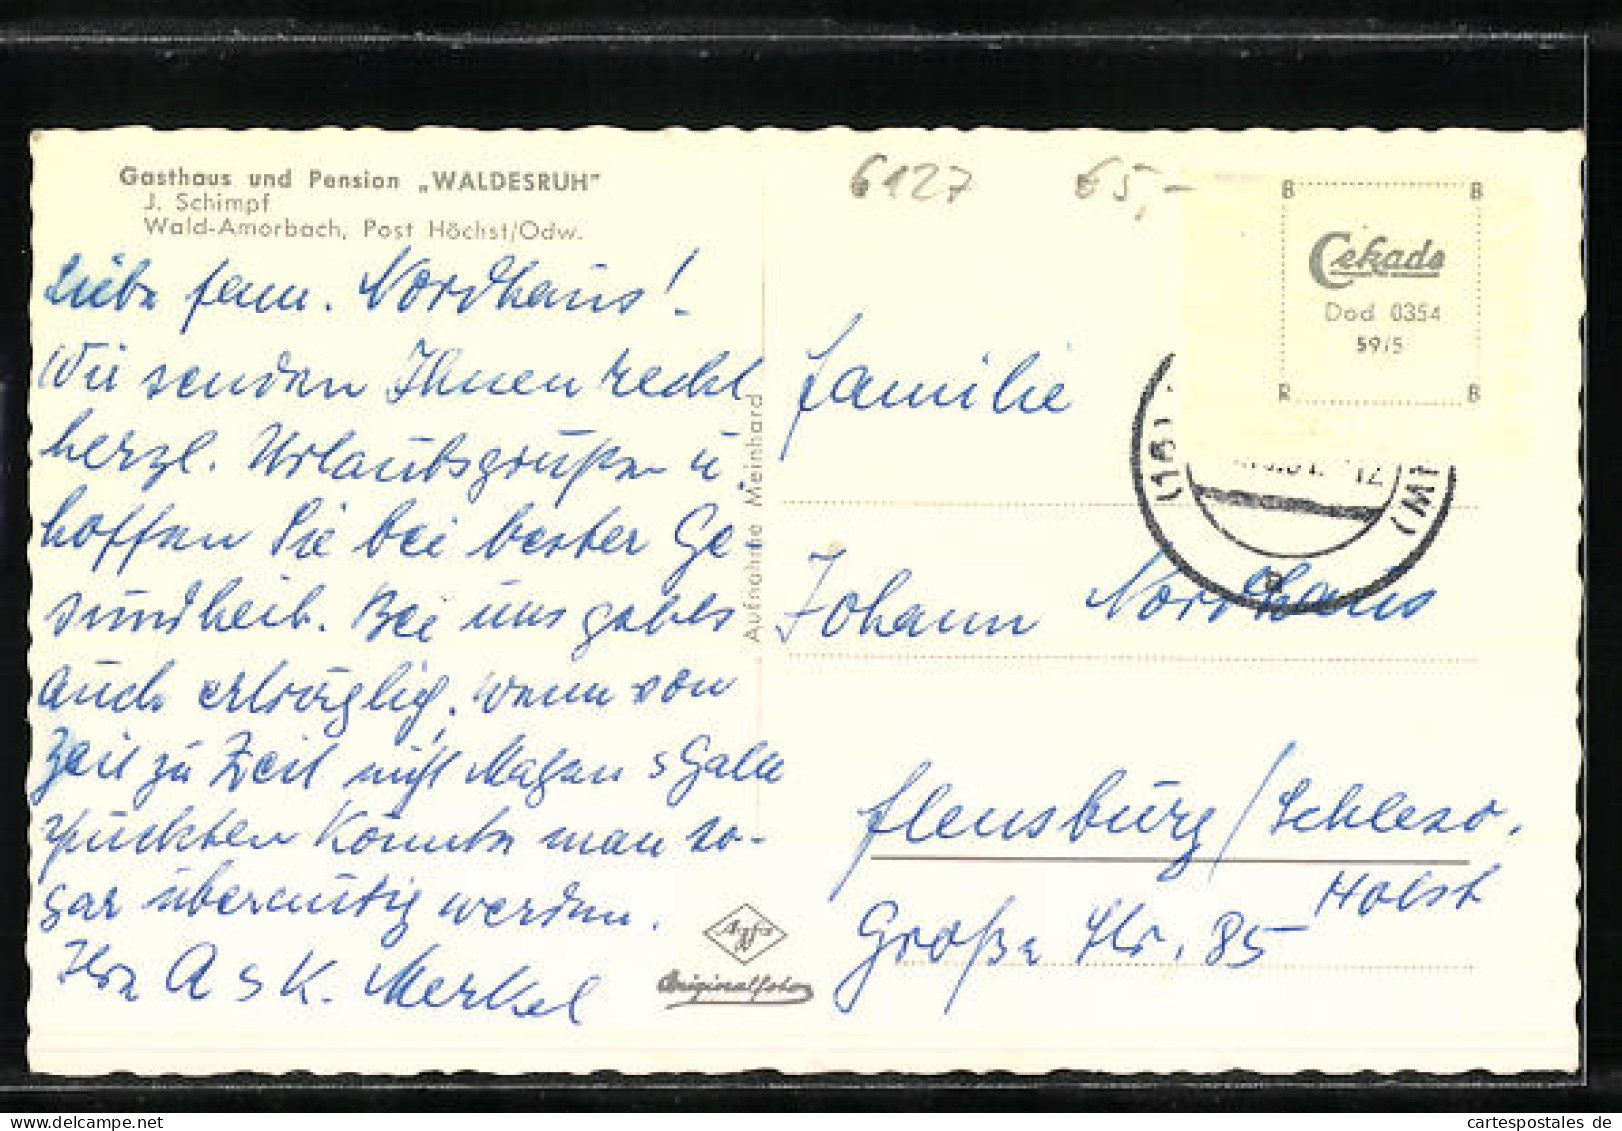 Gasthaus und Pension „WALDESRUH"
J. Schimpf
Wald-Amorbach, Post Höchst/Odw.
Liebe Fam. Nordhaus!
Wir senden Ihnen recht
herzl. Urlaubsgrüße u.
hoffen Sie bei bester Ge
sundheit. Bei uns
auch erträglich, wenn von
Zeit zu Zeit nicht Magen
könnte man so-
gar übermütig werden.
Ihre A & K. Merkel
Aufnahme Meinhard
Agfa
Originalfoto
6127 65,-
B B
Cekade
Dod 0354
59/5
B B
(16)
12
Familie
Johann Nordhaus
Flensburg/Schlesw.
Holst
Große Str. 85
cartespostales de